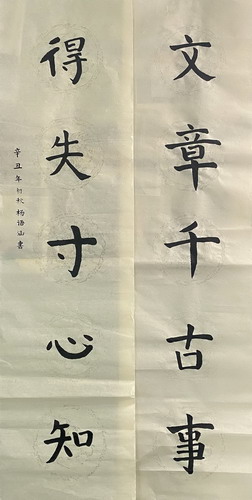 文章千古事
得失寸心知
辛丑年初秋杨语涵書